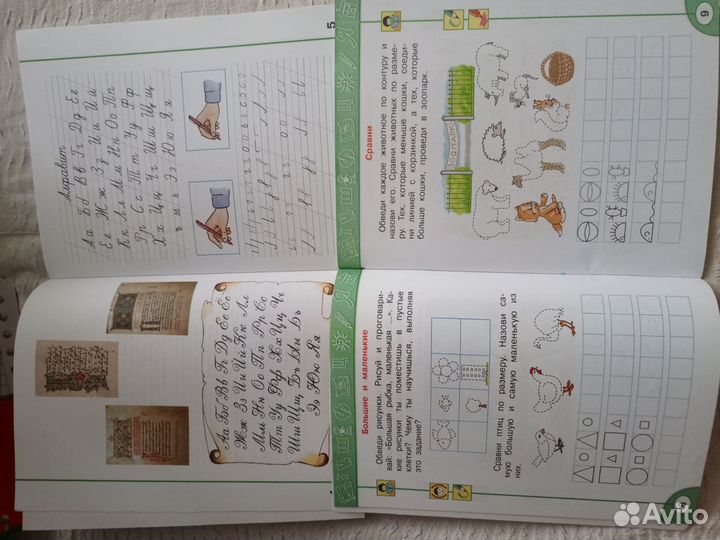 5
Алфавит
Аа Бб Вв Гг Дд Ее
Ёё Жж Зз Ии Йй
Кк Лл Мм Нн Оо Пп
Рр Сс Тт Уу Фф
Хх Цц Чч Шш Щщ
ъ ы ь Ээ Юю Яя
9
Сравни
Обведи каждое животное по контуру и
назови его. Сравни животных по разме-
ру. Тех, которые меньше кошки, соеди-
ни линией с корзинкой, а тех, которые
больше кошки, проведи в зоопарк.
ЗООПАРК
Аа Бб Вв Гг Дд Ее Ёё
Жж Зз Ии Йй Кк Лл
Мм Нн Оо Пп Рр Сс
Тт Уу Фф Хх Цц Чч
Шш Щщ Ъъ Ыы Ьь
Ээ Юю Яя
Большие и маленькие
Обведи рисунки. Рисуй и проговари-
вай: «Большая рыбка, маленькая ...». Ка-
кие рисунки ты поместишь в пустые
клетки? Чему ты научишься, выполняя
это задание?
Сравни птиц по размеру. Назови са-
мую большую и самую маленькую из
них.
Avito